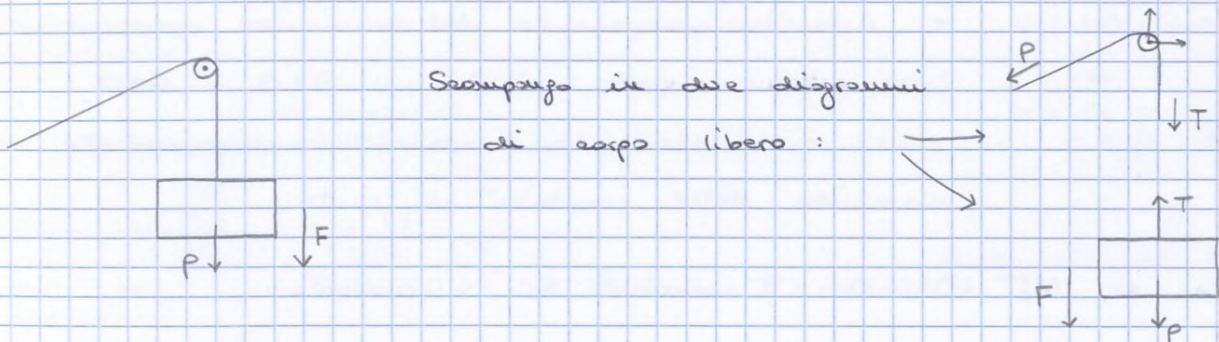 Scompongo in due diagrammi
di corpo libero :
P
T
T
F
P
F
P